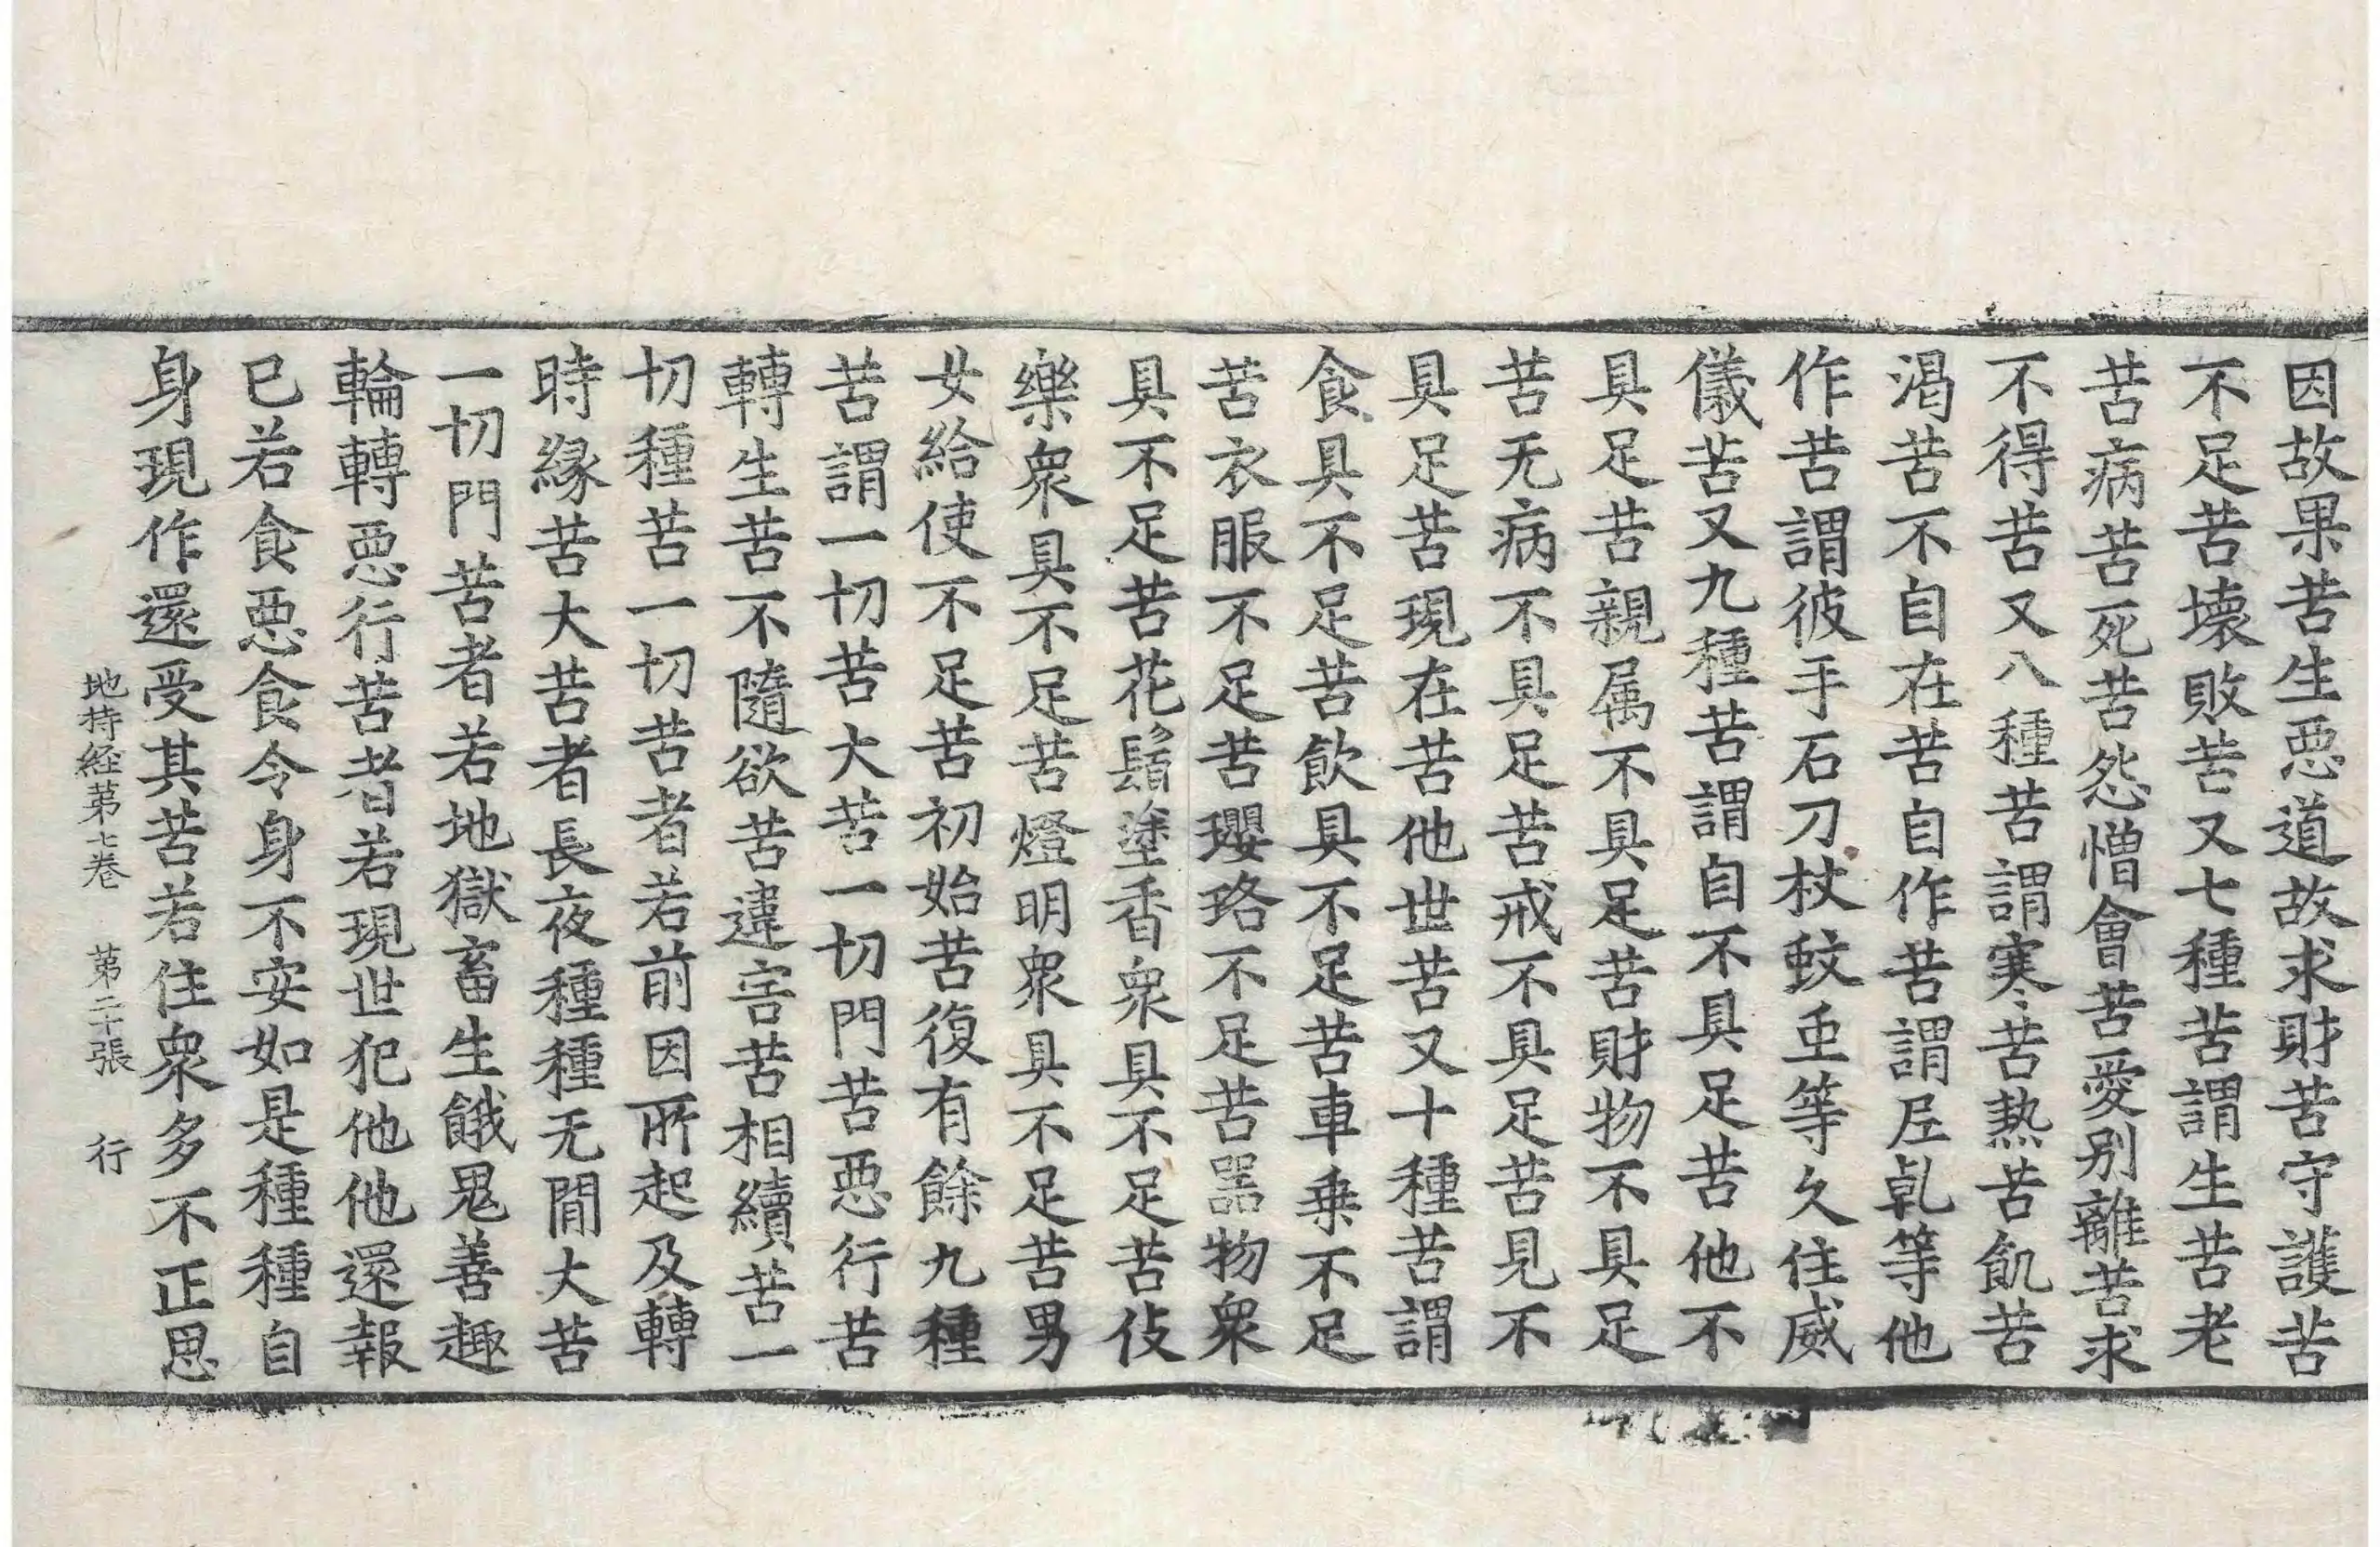 因故果苦生悪道故求財苦守護苦
不足苦壊敗苦又七種苦謂生苦老
苦病苦死苦怨憎會苦愛别離苦求
不得苦又八種苦謂寒苦熱苦飢苦
渇苦不自在苦自作苦謂尼乹等他
作苦謂彼手石刀杖蚊䖝等久住威
儀苦又九種苦謂自不具足苦他不
具足苦親属不具足苦財物不具足
苦无病不具足苦戒不具足苦見不
具足苦現在苦他世苦又十種苦謂
食具不足苦飲具不足苦車乗不足
苦衣服不足苦瓔珞不足苦噐物衆
具不足苦花鬘塗香衆具不足苦伎
樂衆具不足苦燈明衆具不足苦男
女給使不足苦初始苦復有餘九種
苦謂一切苦大苦一切門苦悪行苦
轉生苦不隨欲苦違害苦相續苦一
切種苦一切苦者若前因所起及轉
時縁苦大苦者長夜種種无間大苦
一切門苦者若地獄畜生餓鬼善趣
輪轉悪行苦者若現世犯他他還報
已若食悪食令身不安如是種種自
身現作還受其苦若住衆多不正思
地持経第七巻 第二十張 行